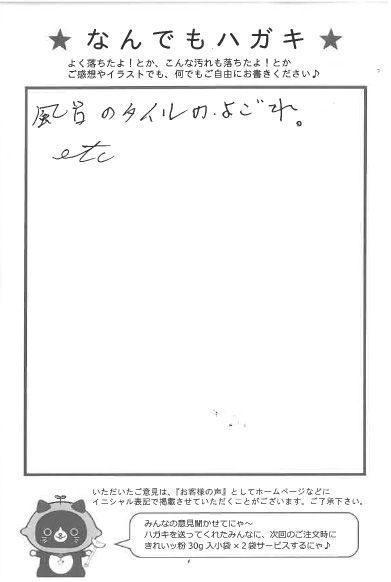 ★ なんでもハガキ ★
よく落ちたよ！とか、こんな汚れも落ちたよ！とか
ご感想やイラストでも、何でもご自由にお書きください♪
風呂のタイルのよごれ。
etc
いただいたご意見は、『お客様の声』としてホームページなどに
イニシャル表記で掲載させていただくことがございます。ご了承下さい。
みんなの意見聞かせてにゃ～
ハガキを送ってくれたみんなに、次回のご注文時に
きれいッ粉 30g 入小袋 × 2 袋サービスするにゃ♪